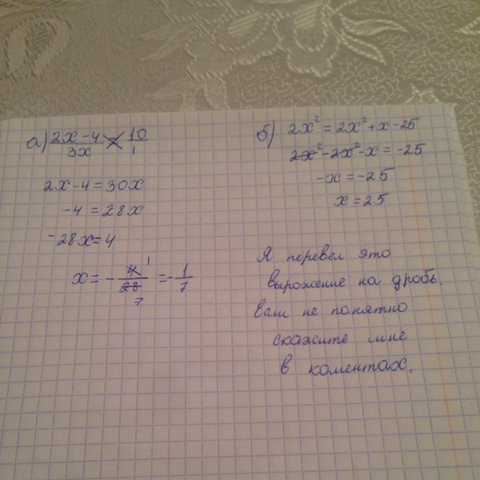 а) (2x-4)/(3x) = 10/1
2x-4=30x
-4=28x
-28x=4
x=-4/28 1 7 =-1/7
б) 2x²=2x²+x-25
2x²-2x²-x=-25
-x=-25
x=25
Я перевел это
вырожение на дробь.
Если не понятно
скажите мне
в коментах.